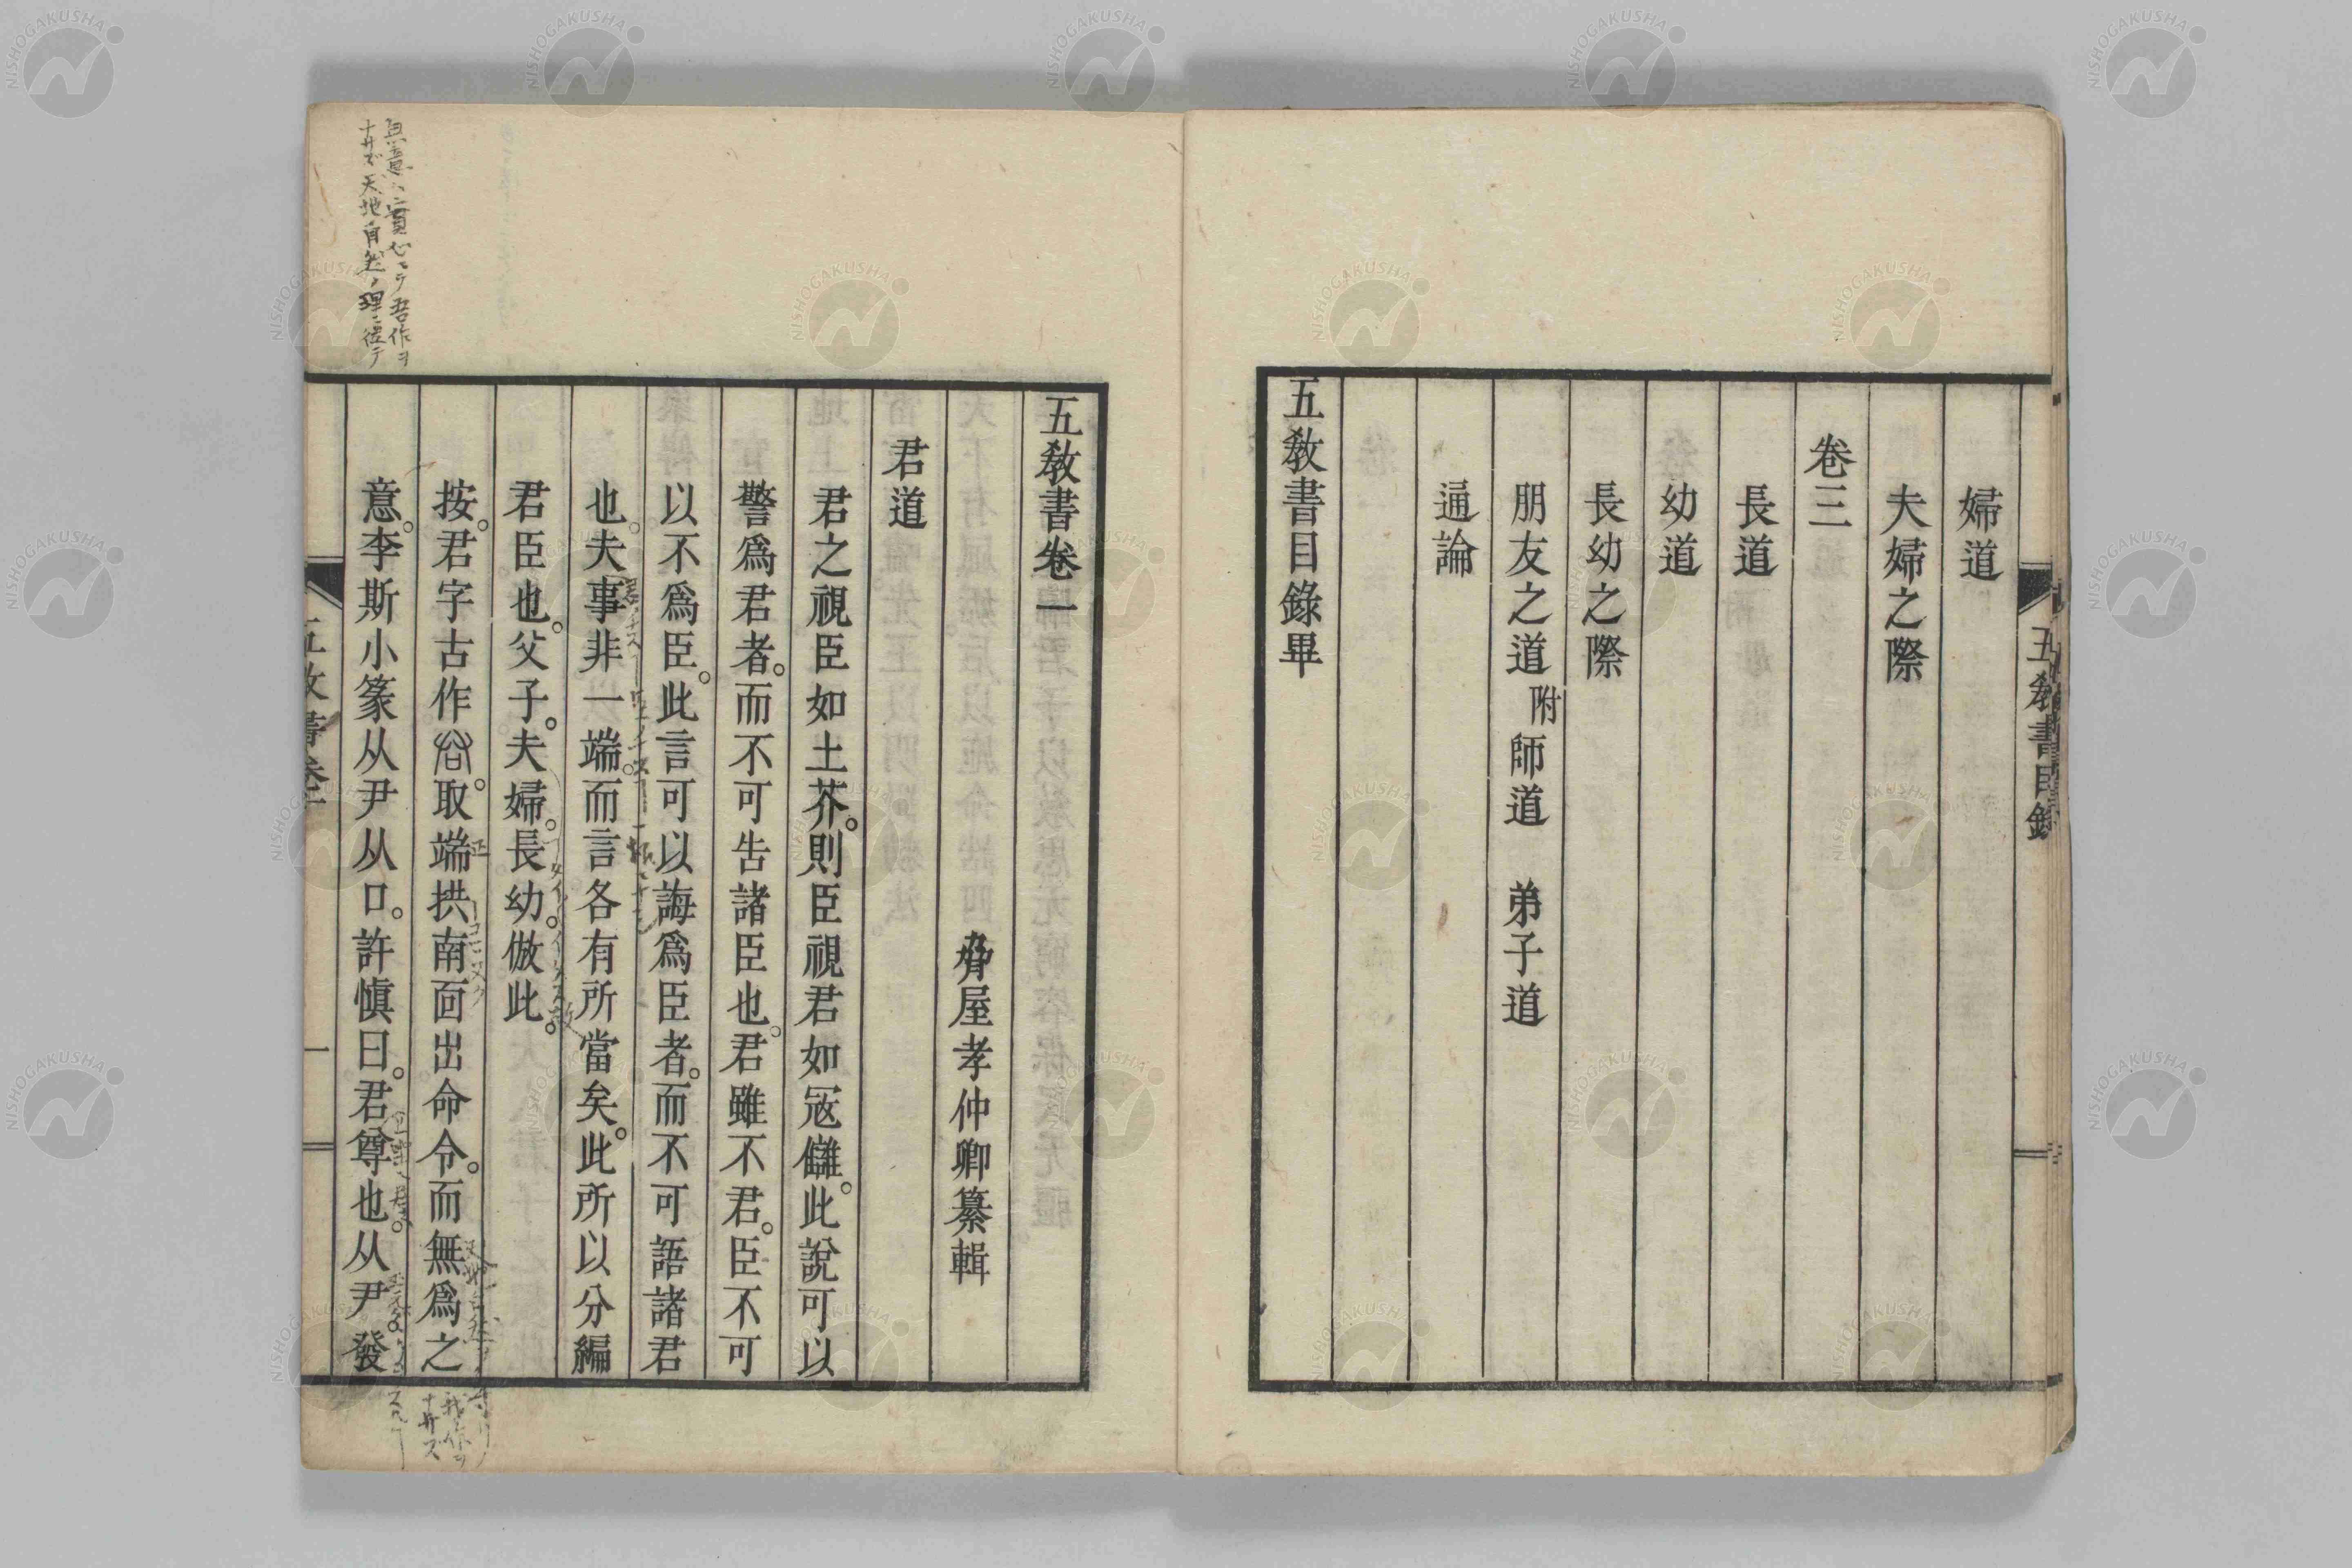 婦道
夫婦之際
卷三
長道
幼道
長幼之際
朋友之道 附師道 弟子道
通論
五教書目錄畢
五教書目錄
五教書卷一
脅屋孝仲卿纂輯
君道
君之視臣如土芥。則臣視君如寇讎。此說可以
警爲君者。而不可告諸臣也。君雖不君。臣不可
以不爲臣。此言可以誨爲臣者。而不可語諸君
也。夫事非一端。而言各有所當矣。此所以分編
君臣也。父子。夫婦。長幼。倣此。
按。君字古作。取端拱南面出命令。而無爲之
意。李斯小篆从尹从口。許愼曰。君尊也。从尹。發
五教書卷一
一
無意ハ實心ニテ吾作ヲ
ナサズ天地自然ノ理ニ從テ
NISHOGAKUSHA